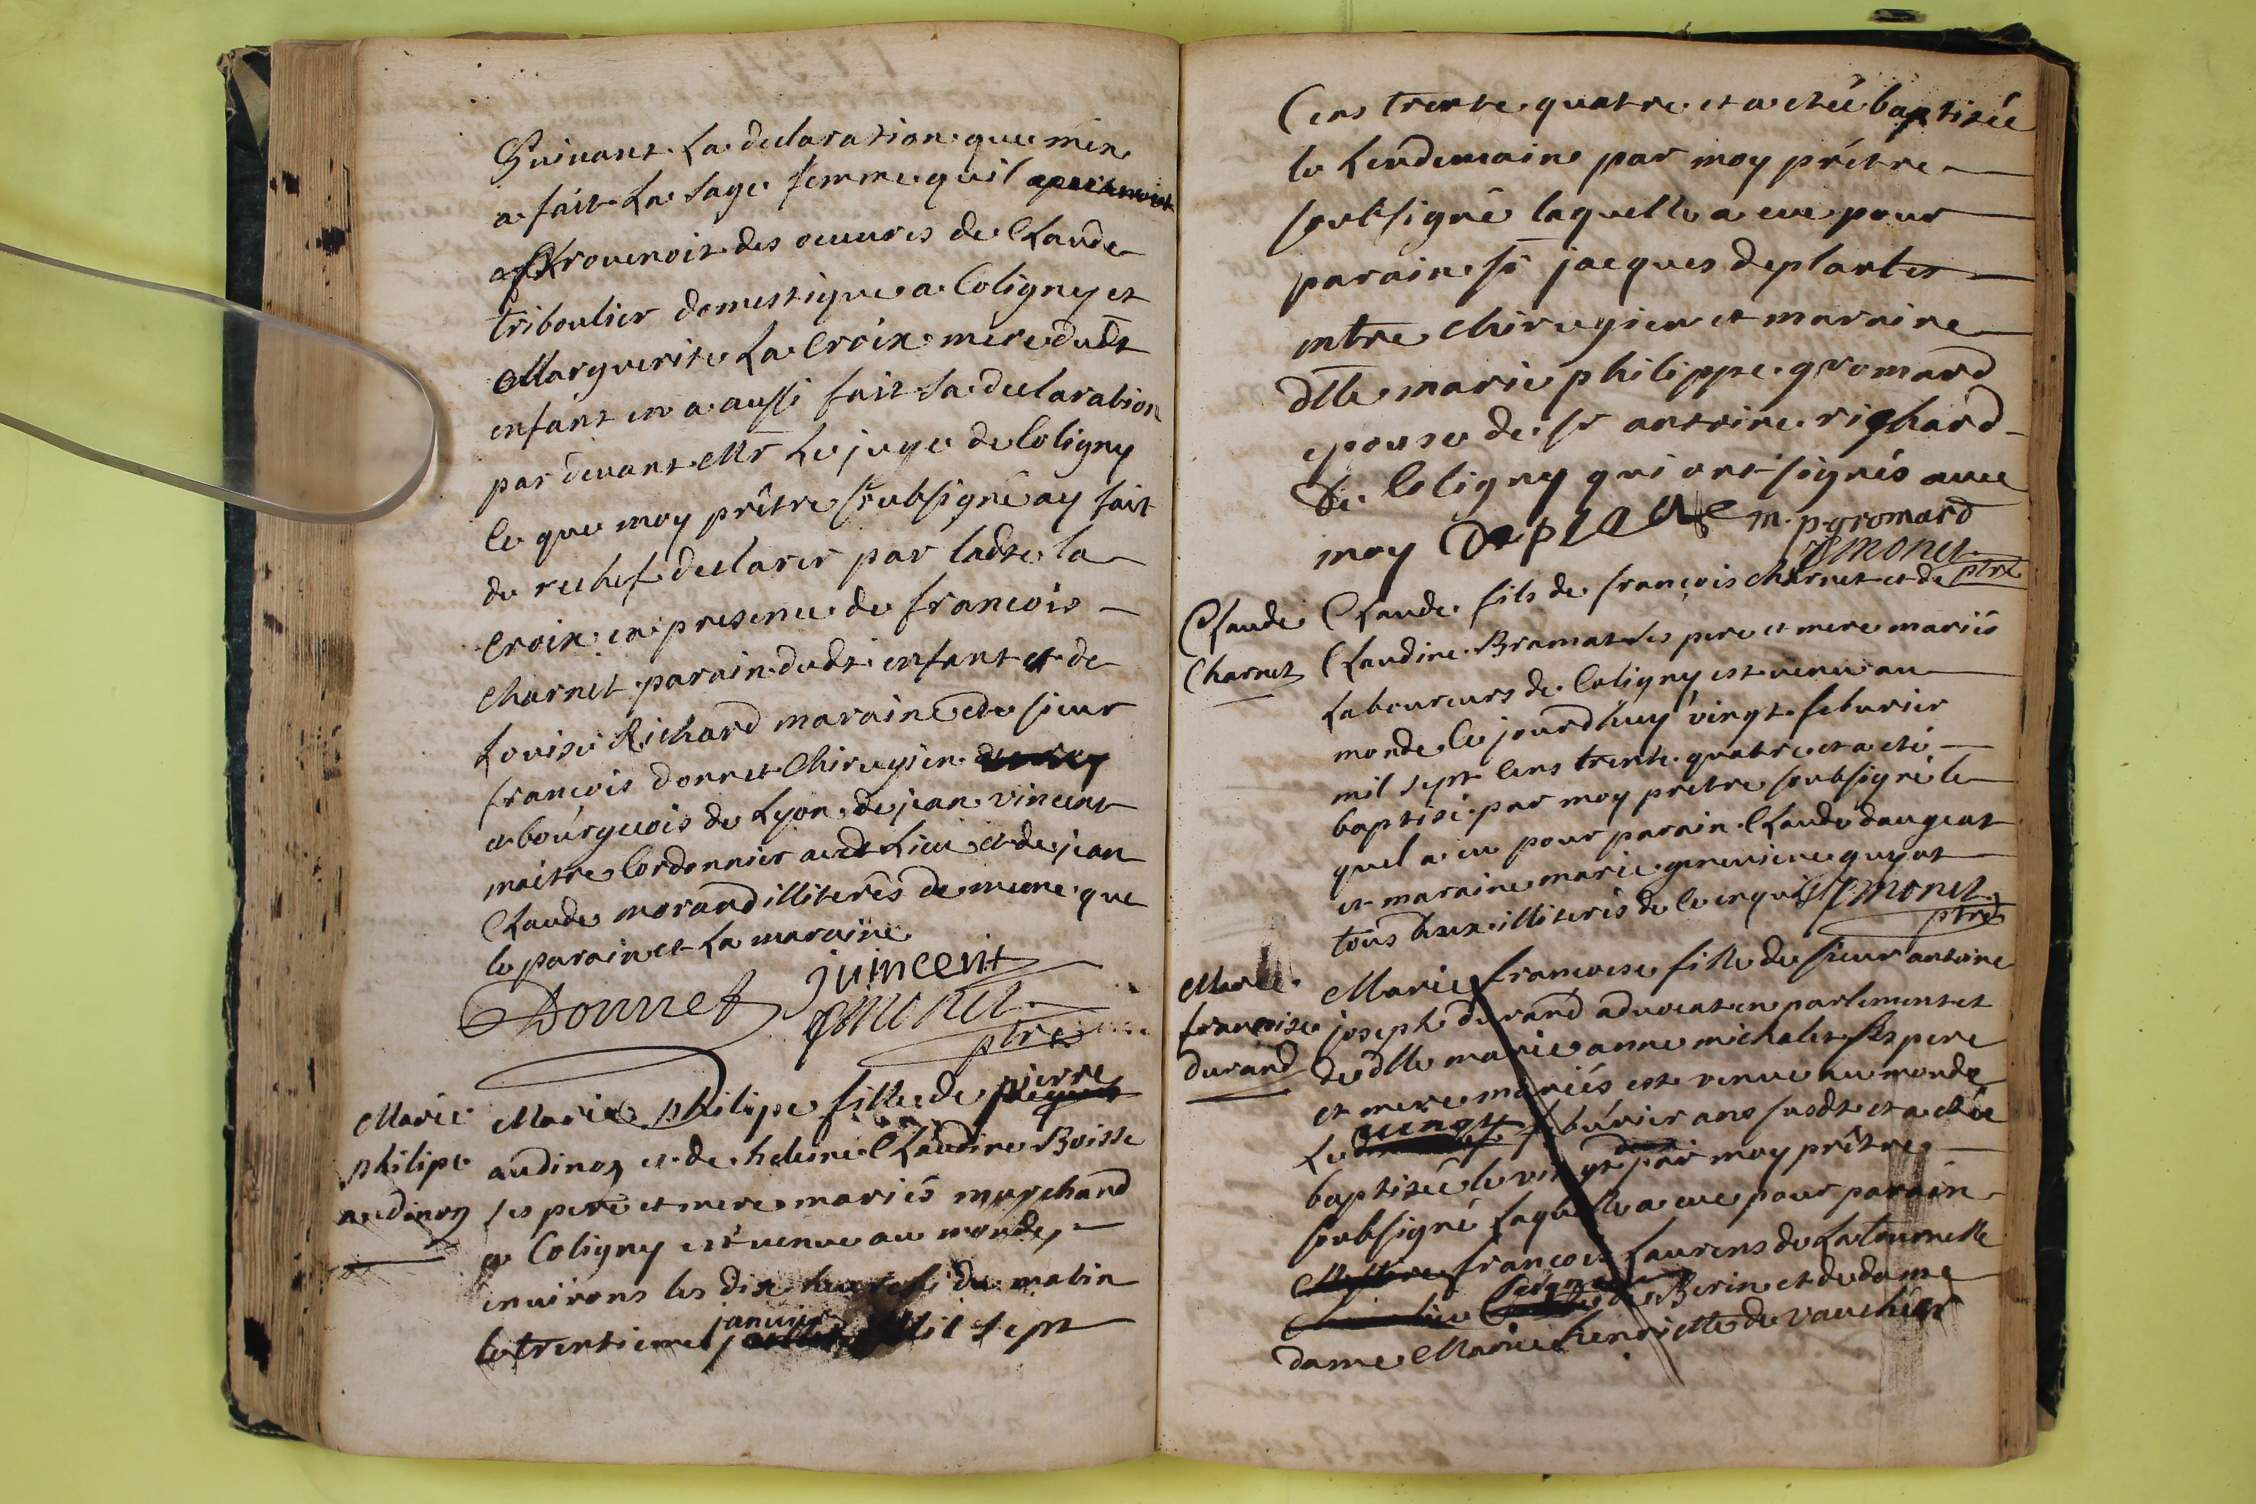 Suivant La declaration que m'en
a fait La Sage femme quil
provenoit des oeuures de Claude
triboulier domestique a Coligny et
Marguerite La Croix mere dudt
enfant en a aussi fait Sa declaration
par devant Mr Le juge de Coligny
Ce que moy prêtre soubsigné ay fait
de rechef declarer par ladte la
Croix en presence de francois
Charnet parain dudt enfant et de
Louise Richard maraine et de sieur
francois donnet Chirugien
et bourgeois de Lyon de jean vincent
maitre Cordonnier audt Lieu et de jean
Claude morand illiterés de meme que
le parain et La maraine
Donnet jvincent
monet
ptre
Marie
philipe
audinoz
Marie philipe fille de pierre
audinoz et de heleine Claudine Boisse
ses pere et mere mariés marchand
a Coligny est venue au monde
environs les dix heures du matin
le trentieme janvier Mil sept
Cens trente quatre et a etée baptisée
le Lendemain par moy prêtre
soubsigné laquelle a eue pour
parain sr jacques deplantes
mtre chirugien et maraine
dlle marie philippe gromard
epouse de sr antoine richard
de Coligny qui ont signés avec
moy m. p. gromard
monet
ptre
Claude
Charnet
Claude fils de françois charnet et de
Claudine Bramat ses pere et mere mariés
Laboureurs de Coligny est venu au
monde Ce jourdhuy vingt feburier
mil sept Cens trente quatre et a eté
baptisé par moy pretre soubsigné le
quel a eu pour parain Claude dangeat
et maraine marie genevieve guyot
tous deux illiterés de Ce enquis monet
ptre
Marie
francoise
durand
Marie francoise fille de sieur antoine
joseph durand advocat en parlement et
de dlle marie anne michalet ses pere
et mere mariés est venue au monde
Le vingt feburier ans susdt et a etée
baptisée le vingt par moy prêtre
soubsigné Laquelle a eue pour parain
francois Laurens de La tournelle
seigneur Berin et de dame
dame Marie henriette de vauchier